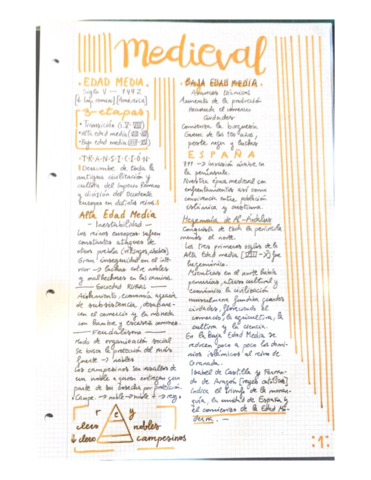 Medieval
· EDAD MEDIA ·
Siglo V - 1492
[6 Imp. romano] [América]
3 etapas:
· Transición (S. V-VIII)
· Alta edad media
· Baja edad media
-T-R-A-N-S-I-C-I-Ó-N-
Derrumbe de toda la
antigua civilización y
cultura del Imperio Romano
y división del Occidente
Europeo en distintos reinos.
Alta Edad Media
- Inestabilidad -
Los reinos europeos sufren
constantes ataques de
otros pueblos (vikingos, árabes)
Gran inseguridad en el inte-
rior → luchas entre nobles
y malhechores en los caminos.
- Sociedad Rural -
Aislamiento, economía agraria
de subsistencia, desapare-
cen el comercio y la moneda
con hambre y crecientes
- Feudalismo -
Modo de organización social
Se busca la protección del más
fuerte → nobles
Los campesinos son vasallos de
un noble a quien entregan
parte de sus cosechas por protección
Campe. → noble → noble + → rey.
r e y
clero nobles
↓ clero campesinos
BAJA EDAD MEDIA
Avances técnicos
Aumento de la producción
renacerá el comercio
Ciudades
Comienza la burguesía
Guerra de los 100 años,
peste negra y luchas
ESPAÑA
711 → invasión árabe en
la península.
Nuestra época medieval con
enfrentamientos así como
convivencia entre población
islámica y cristiana.
Hegemonía de Al-Ándalus
Conquista de toda la península
menos el norte.
Los tres primeros siglos de la
Alta Edad media [VIII-X] fue
hegemónico.
Mientras en el norte había
penurias, atraso cultural y
económico la civilización
musulmana fundaba grandes
ciudades, floreciendo el
comercio, la agricultura, la
cultura y la ciencia.
En la Baja Edad Media se
reducen poco a poco los domi-
nios islámicos al reino de
Granada.
Isabel de Castilla y Fernan-
do de Aragón [reyes católicos]
indica el triunfo de la monar-
quía, la unidad de España y
el comienzo de la Edad Mo-
derna. -
:1: